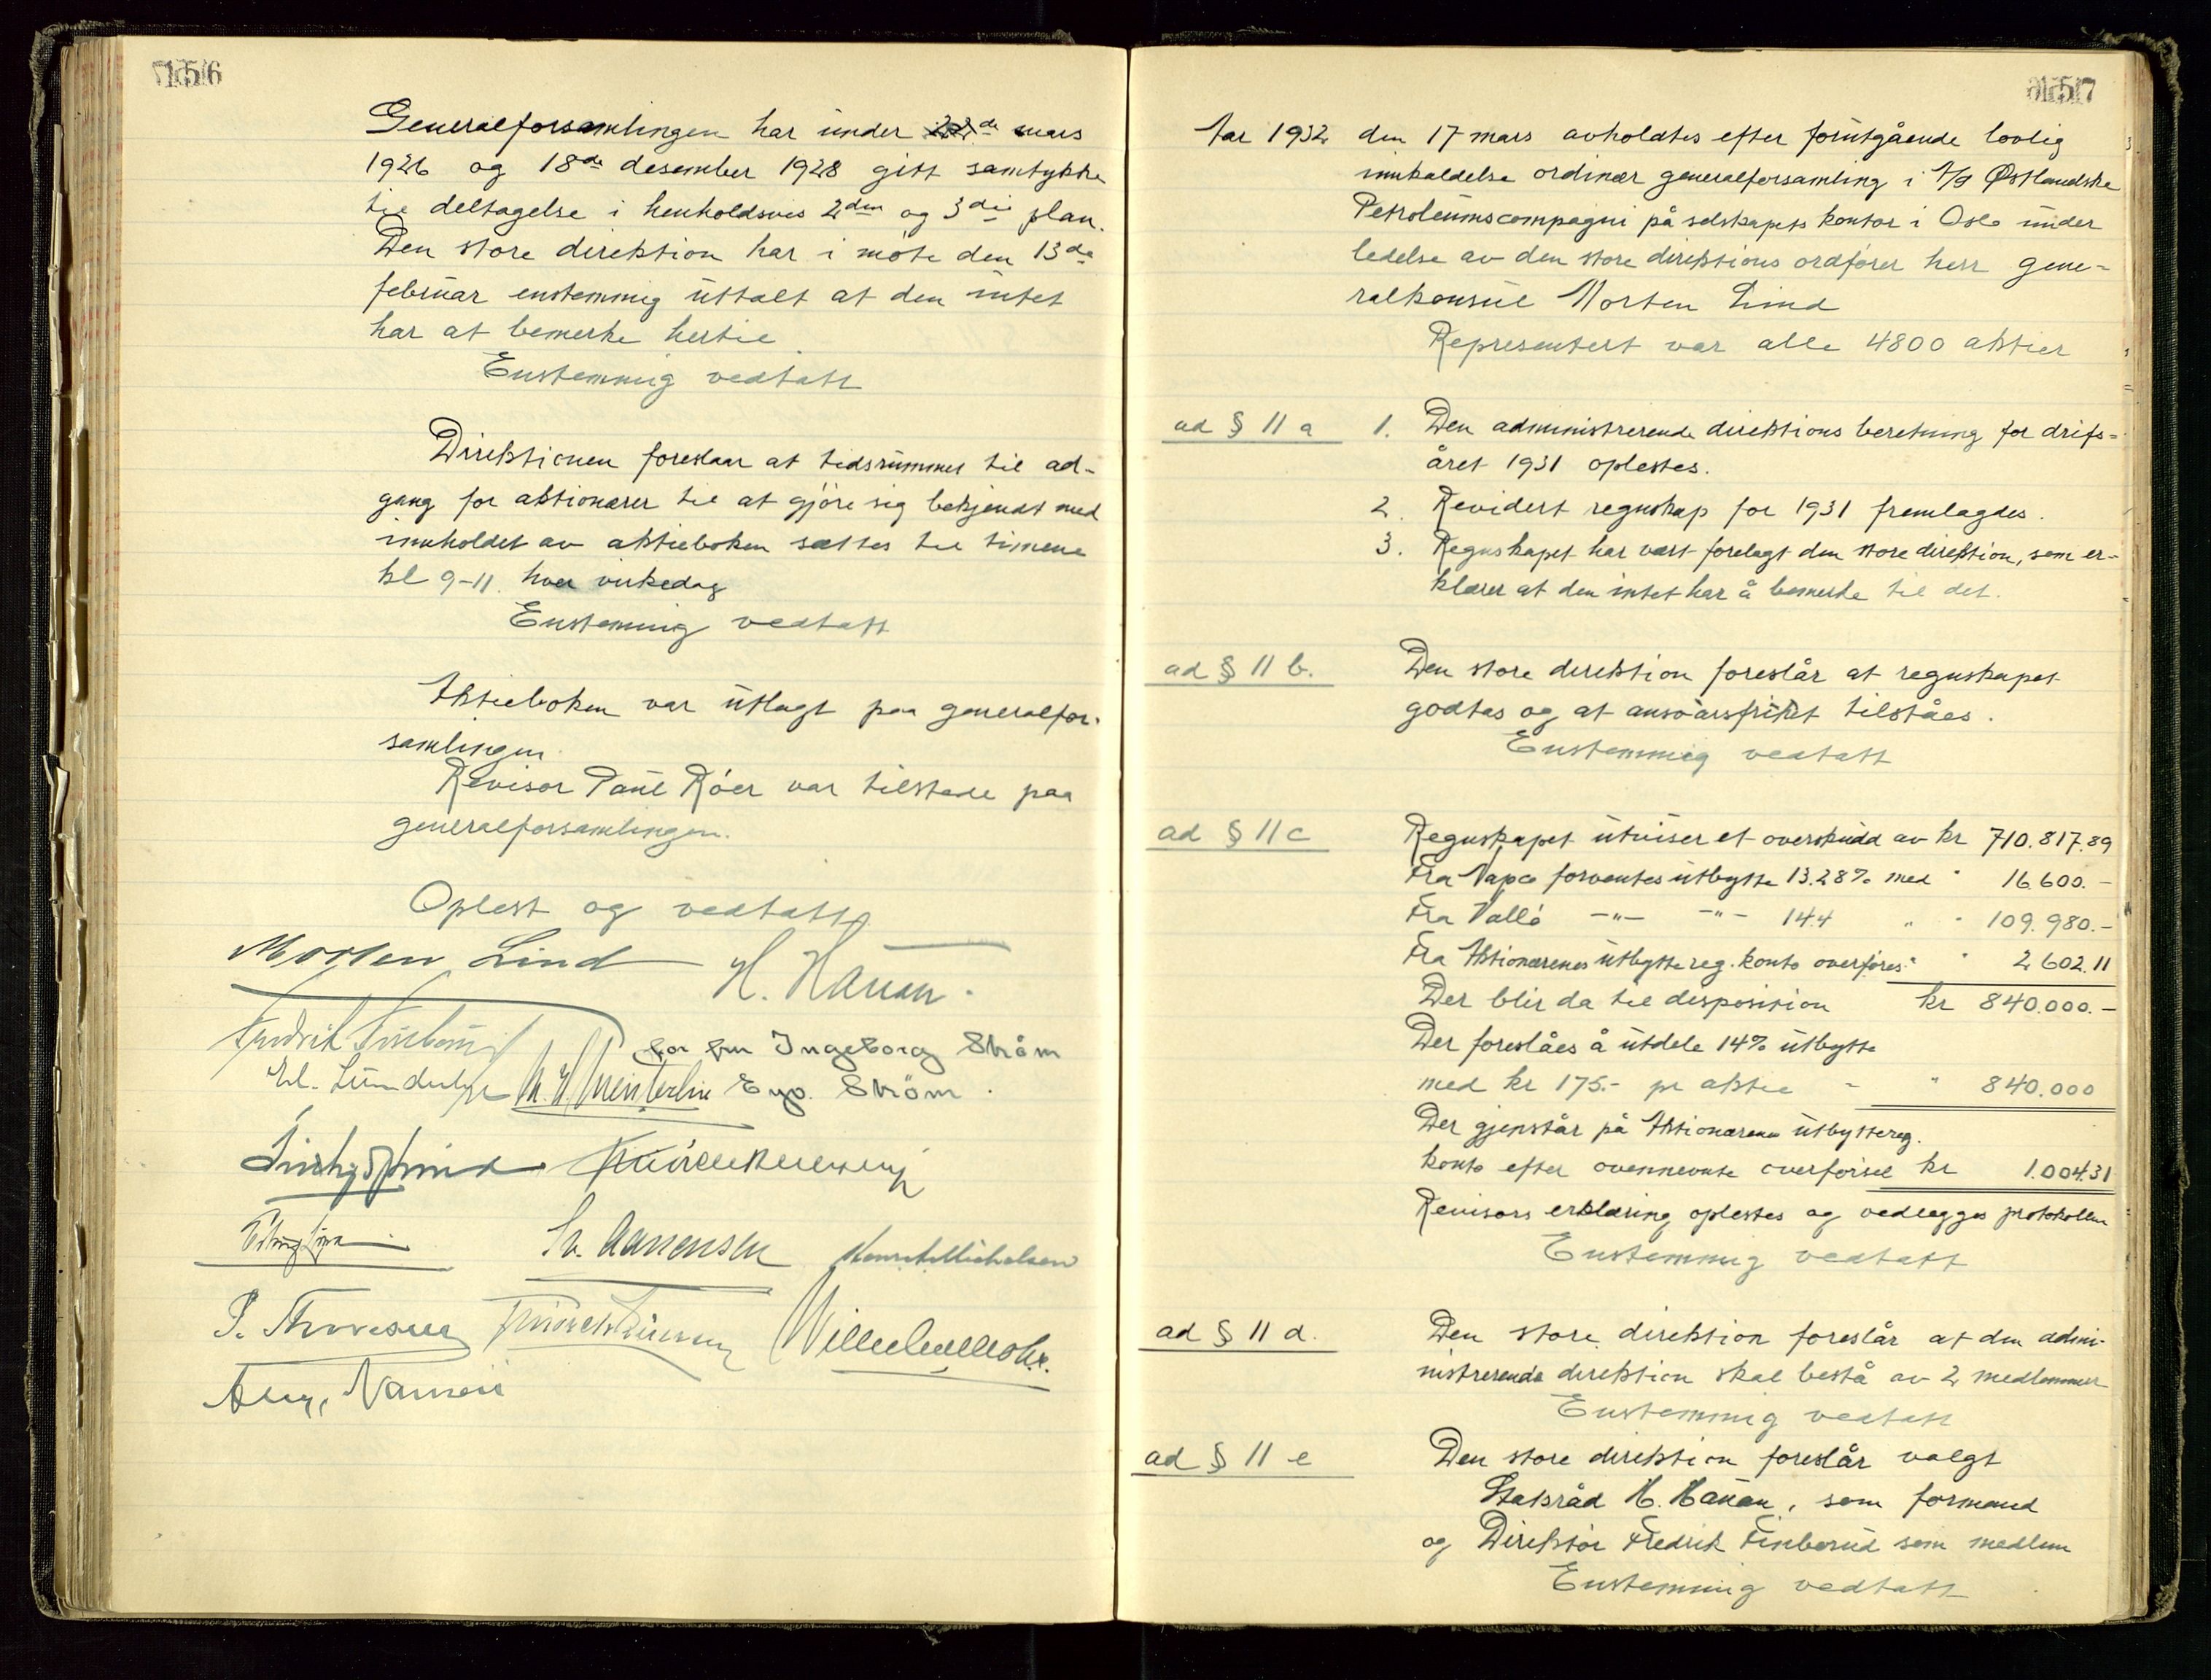 156
Generalforsamlingen har under 22de mars
1926 og 18de desember 1928 gitt samtykke
til deltagelse i henholdsvis 2den og 3die plan.
Den store direktion har i møte den 13de
februar enstemmig uttalt at den intet
har at bemerke hertil.
Enstemmig vedtatt
Direktionen foreslaar at tidsrummet til ad-
gang for aktionærer til at gjöre sig bekjendt med
innholdet av aktieboken sættes til timene
kl 9-11. hver virkedag
Enstemmig vedtatt
Aktieboken var utlagt paa generalfor-
samlingen.
Revisor Paul Róer var tilstede paa
generalforsamlingen.
Oplest og vedtatt
Morten Lind H. Hauan.
Fredrik Finborud for fru Ingeborg Ström
Eyv. Ström.
Sv. Aanensen
P. Thoresen
157
Aar 1932 den 17 mars avholdtes efter forutgående lovlig
innkaldelse ordinær generalforsamling i A/S Østlandske
Petroleumscompagni på selskapets kontor i Oslo under
ledelse av den store direktions ordfører herr gene-
ralkonsul Morten Lind
Representert var alle 4800 aktier
ad § 11 a 1. Den administrerende direktions beretning for drifs-
året 1931 oplestes.
2. Revidert regnskap for 1931 fremlagdes.
3. Regnskapet har vært forelagt den store direktion, som er-
klærer at den intet har å bemerke til det.
ad § 11 b. Den store direktion foreslår at regnskapet
godtas og at ansvarsfrihet tilståes.
Enstemmig vedtatt
ad § 11 c Regnskapet utviser et overskudd av kr 710.817.89
Fra Vapco forventes utbytte 13.28% med " 16.600.-
Fra Valló -"- -"- 14.4 " " 109.980.-
Fra Aktionærenes utbyttereg. konto overføres " " 2602.11
Der blir da til disposition kr 840.000.-
Der foreslåes å utdele 14% utbytte
med kr 175.- pr aktie - " 840.000
Der gjenstår på Aktionærenes utbyttereg.
konto efter ovennevnte overførsel kr 1.004.31
Revisors erklæring oplestes og vedlegges protokollen
Enstemmig vedtatt
ad § 11 d. Den store direktion foreslår at den admi-
nistrerende direktion skal bestå av 2 medlemmer
Enstemmig vedtatt
ad § 11 e Den store direktion foreslår valgt
Statsråd H. Hauan, som formand
og Direktör Fredrik Finborud som medlem
Enstemmig vedtatt